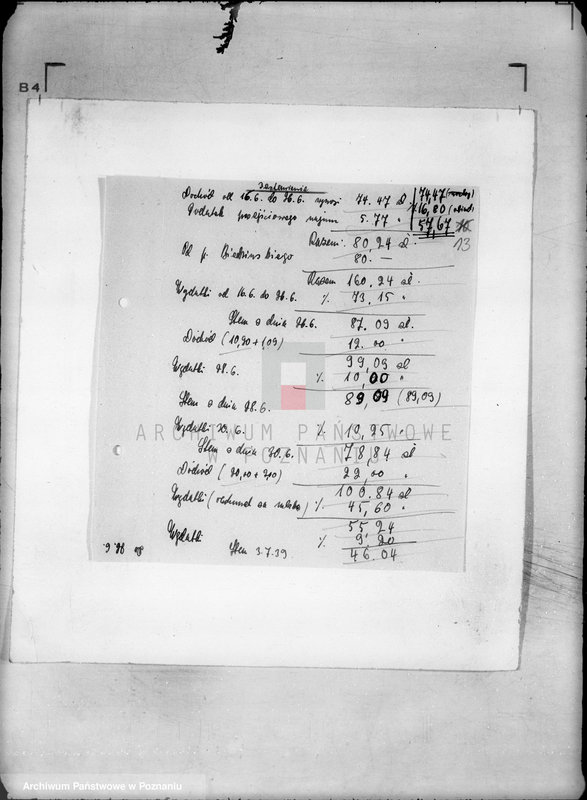 B4
Zestawienie
Dochód od 16.6. do 26.6. wynosi 74.47 zł
74,47
Dodatek 5.77 "
16,80
57,67
13
Razem: 80,24 zł.
Od p. 80.—
Razem 160,24 zł.
Wydatki od 16.6. do 26.6. % 73,15 "
Stan z dnia 26.6. 87.09 zł.
Dochód (10,90 + 1,09) 12.00 "
99,09 zł
Wydatki 28.6. % 10,00 "
Stan z dnia 28.6. 89,09 (89,09)
Wydatki 30.6. % 10,25 "
Stan z dnia 30.6. 78,84 zł
Dochód 22,00 "
100.84 zł
Wydatki (rachunek za mleko) % 45,60 "
55,24
Wydatki % 9,20
Stan 3.7.39 46.04
ARCHIWUM PAŃSTWOWE
W POZNANIU
Archiwum Państwowe w Poznaniu